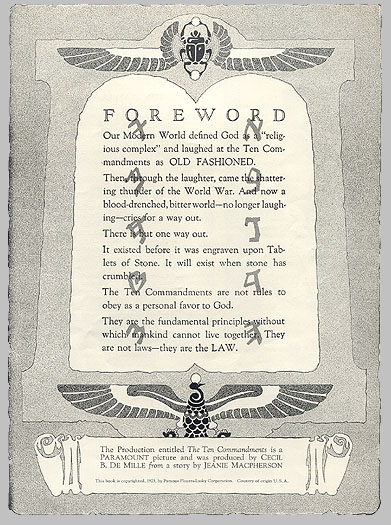 FOREWORD
Our Modern World defined God as a "relig-
ious complex" and laughed at the Ten Com-
mandments as OLD FASHIONED.
Then, through the laughter, came the shatter-
ing thunder of the World War. And now a
blood-drenched, bitter world—no longer laugh-
ing—cries for a way out.
There is but one way out.
It existed before it was engraven upon Tab-
lets of Stone. It will exist when stone has
crumbled.
The Ten Commandments are not rules to
obey as a personal favor to God.
They are the fundamental principles without
which mankind cannot live together. They
are not laws—they are the LAW.
The Production entitled The Ten Commandments is a
PARAMOUNT picture and was produced by CECIL
B. DE MILLE from a story by JEANIE MACPHERSON
This book is copyrighted, 1923, by Famous Players-Lasky Corporation. Country of origin U. S. A.